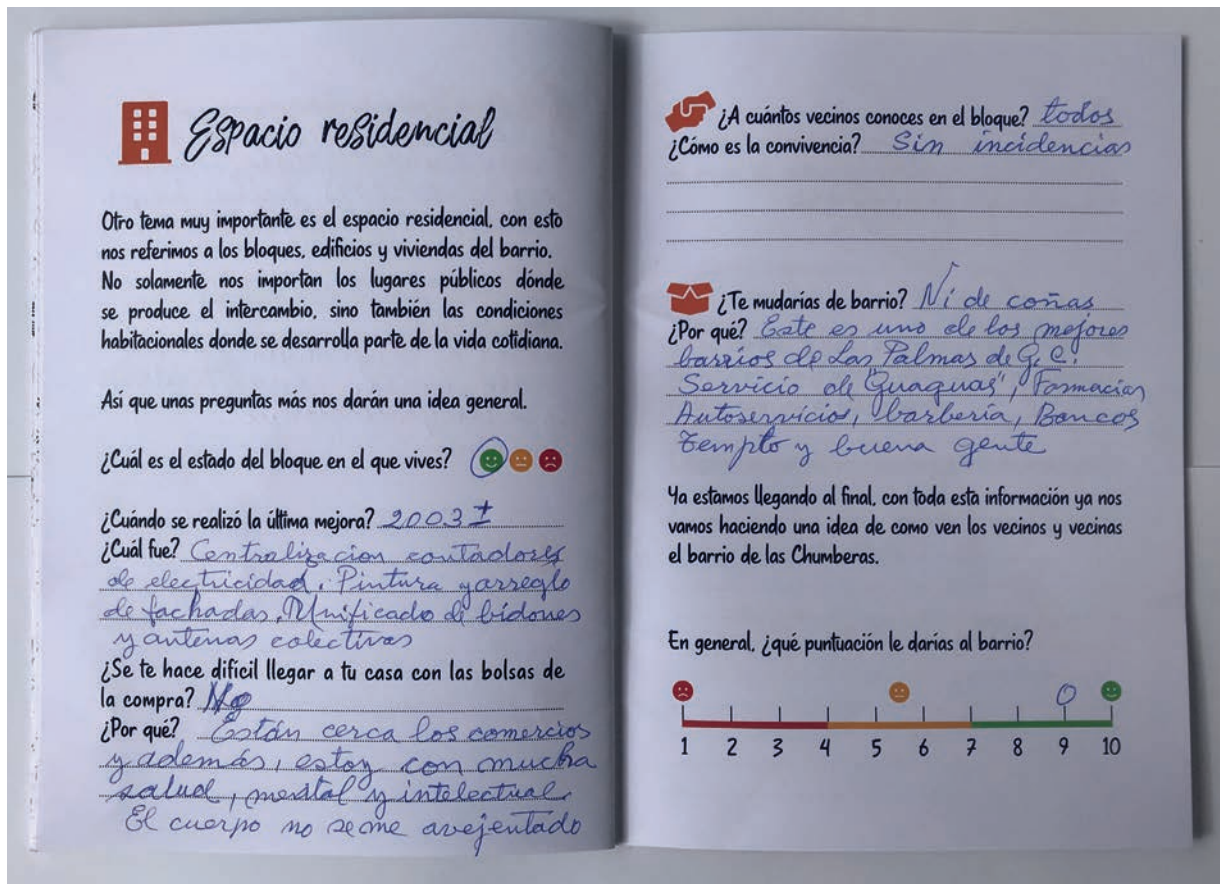 Espacio residencial
Otro tema muy importante es el espacio residencial, con esto
nos referimos a los bloques, edificios y viviendas del barrio.
No solamente nos importan los lugares públicos dónde
se produce el intercambio, sino también las condiciones
habitacionales donde se desarrolla parte de la vida cotidiana.
Así que unas preguntas más nos darán una idea general.
¿Cuál es el estado del bloque en el que vives?
¿Cuándo se realizó la última mejora? 2003 ±
¿Cuál fue? Centralizacion contadores
de electricidad. Pintura y arreglo
de fachadas. Unificado de bidones
y antenas colectivas
¿Se te hace difícil llegar a tu casa con las bolsas de
la compra? No
¿Por qué? Están cerca los comercios
y además, estoy con mucha
salud, mental y intelectual.
El cuerpo no se me avejentado
¿A cuántos vecinos conoces en el bloque? todos
¿Cómo es la convivencia? Sin incidencias
¿Te mudarías de barrio? Ni de coñas
¿Por qué? Este es uno de los mejores
barrios de Las Palmas de G. C.
Servicio de "Guaguas", Farmacias
Autoservicios, barbería, Bancos
Templo y buena gente
Ya estamos llegando al final, con toda esta información ya nos
vamos haciendo una idea de como ven los vecinos y vecinas
el barrio de las Chumberas.
En general, ¿qué puntuación le darías al barrio?
1 2 3 4 5 6 7 8 9 10